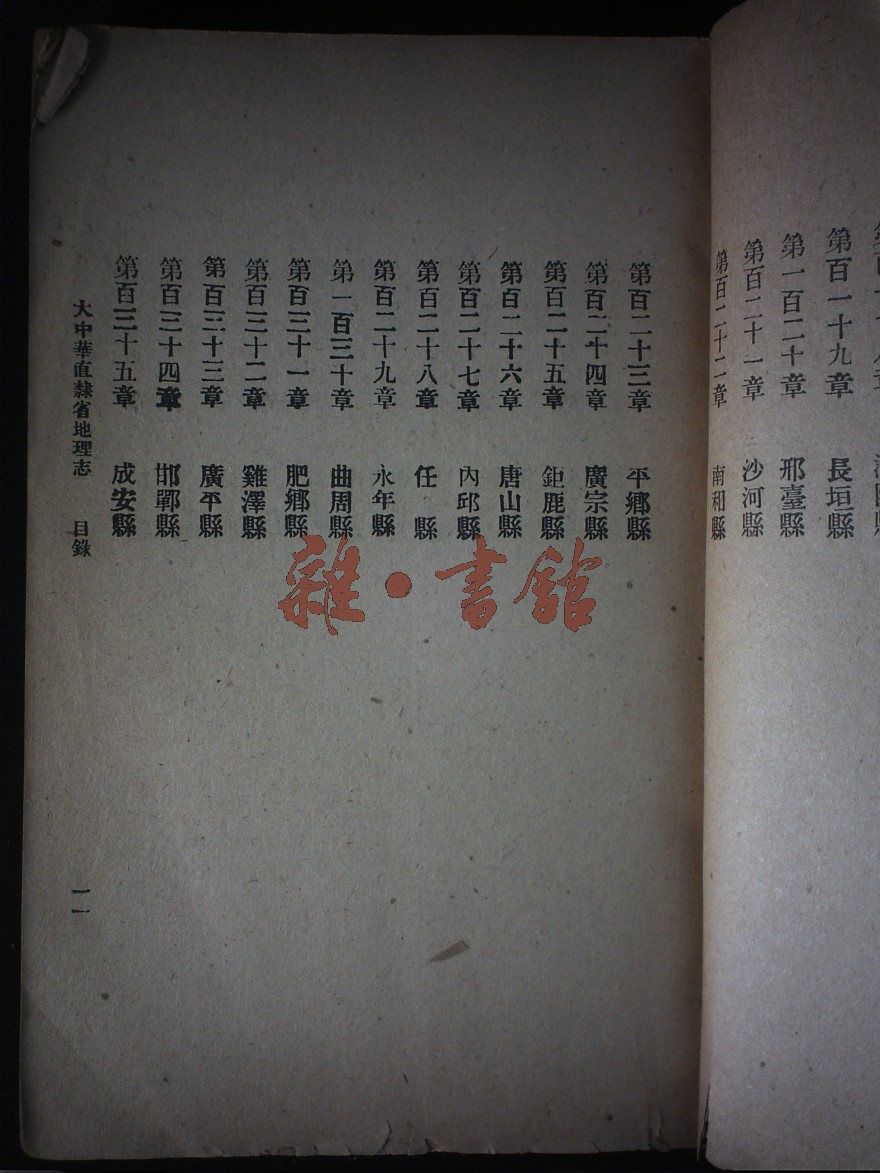 第百一十九章 長垣縣
第一百二十章 邢臺縣
第百二十一章 沙河縣
第百二十二章 南和縣
第百二十三章 平鄉縣
第百二十四章 廣宗縣
第百二十五章 鉅鹿縣
第百二十六章 唐山縣
第百二十七章 內邱縣
第百二十八章 任縣
第百二十九章 永年縣
第一百三十章 曲周縣
第百三十一章 肥鄉縣
第百三十二章 雞澤縣
第百三十三章 廣平縣
第百三十四章 邯鄲縣
第百三十五章 成安縣
大中華直隸省地理志 目錄 一一
雜·書館